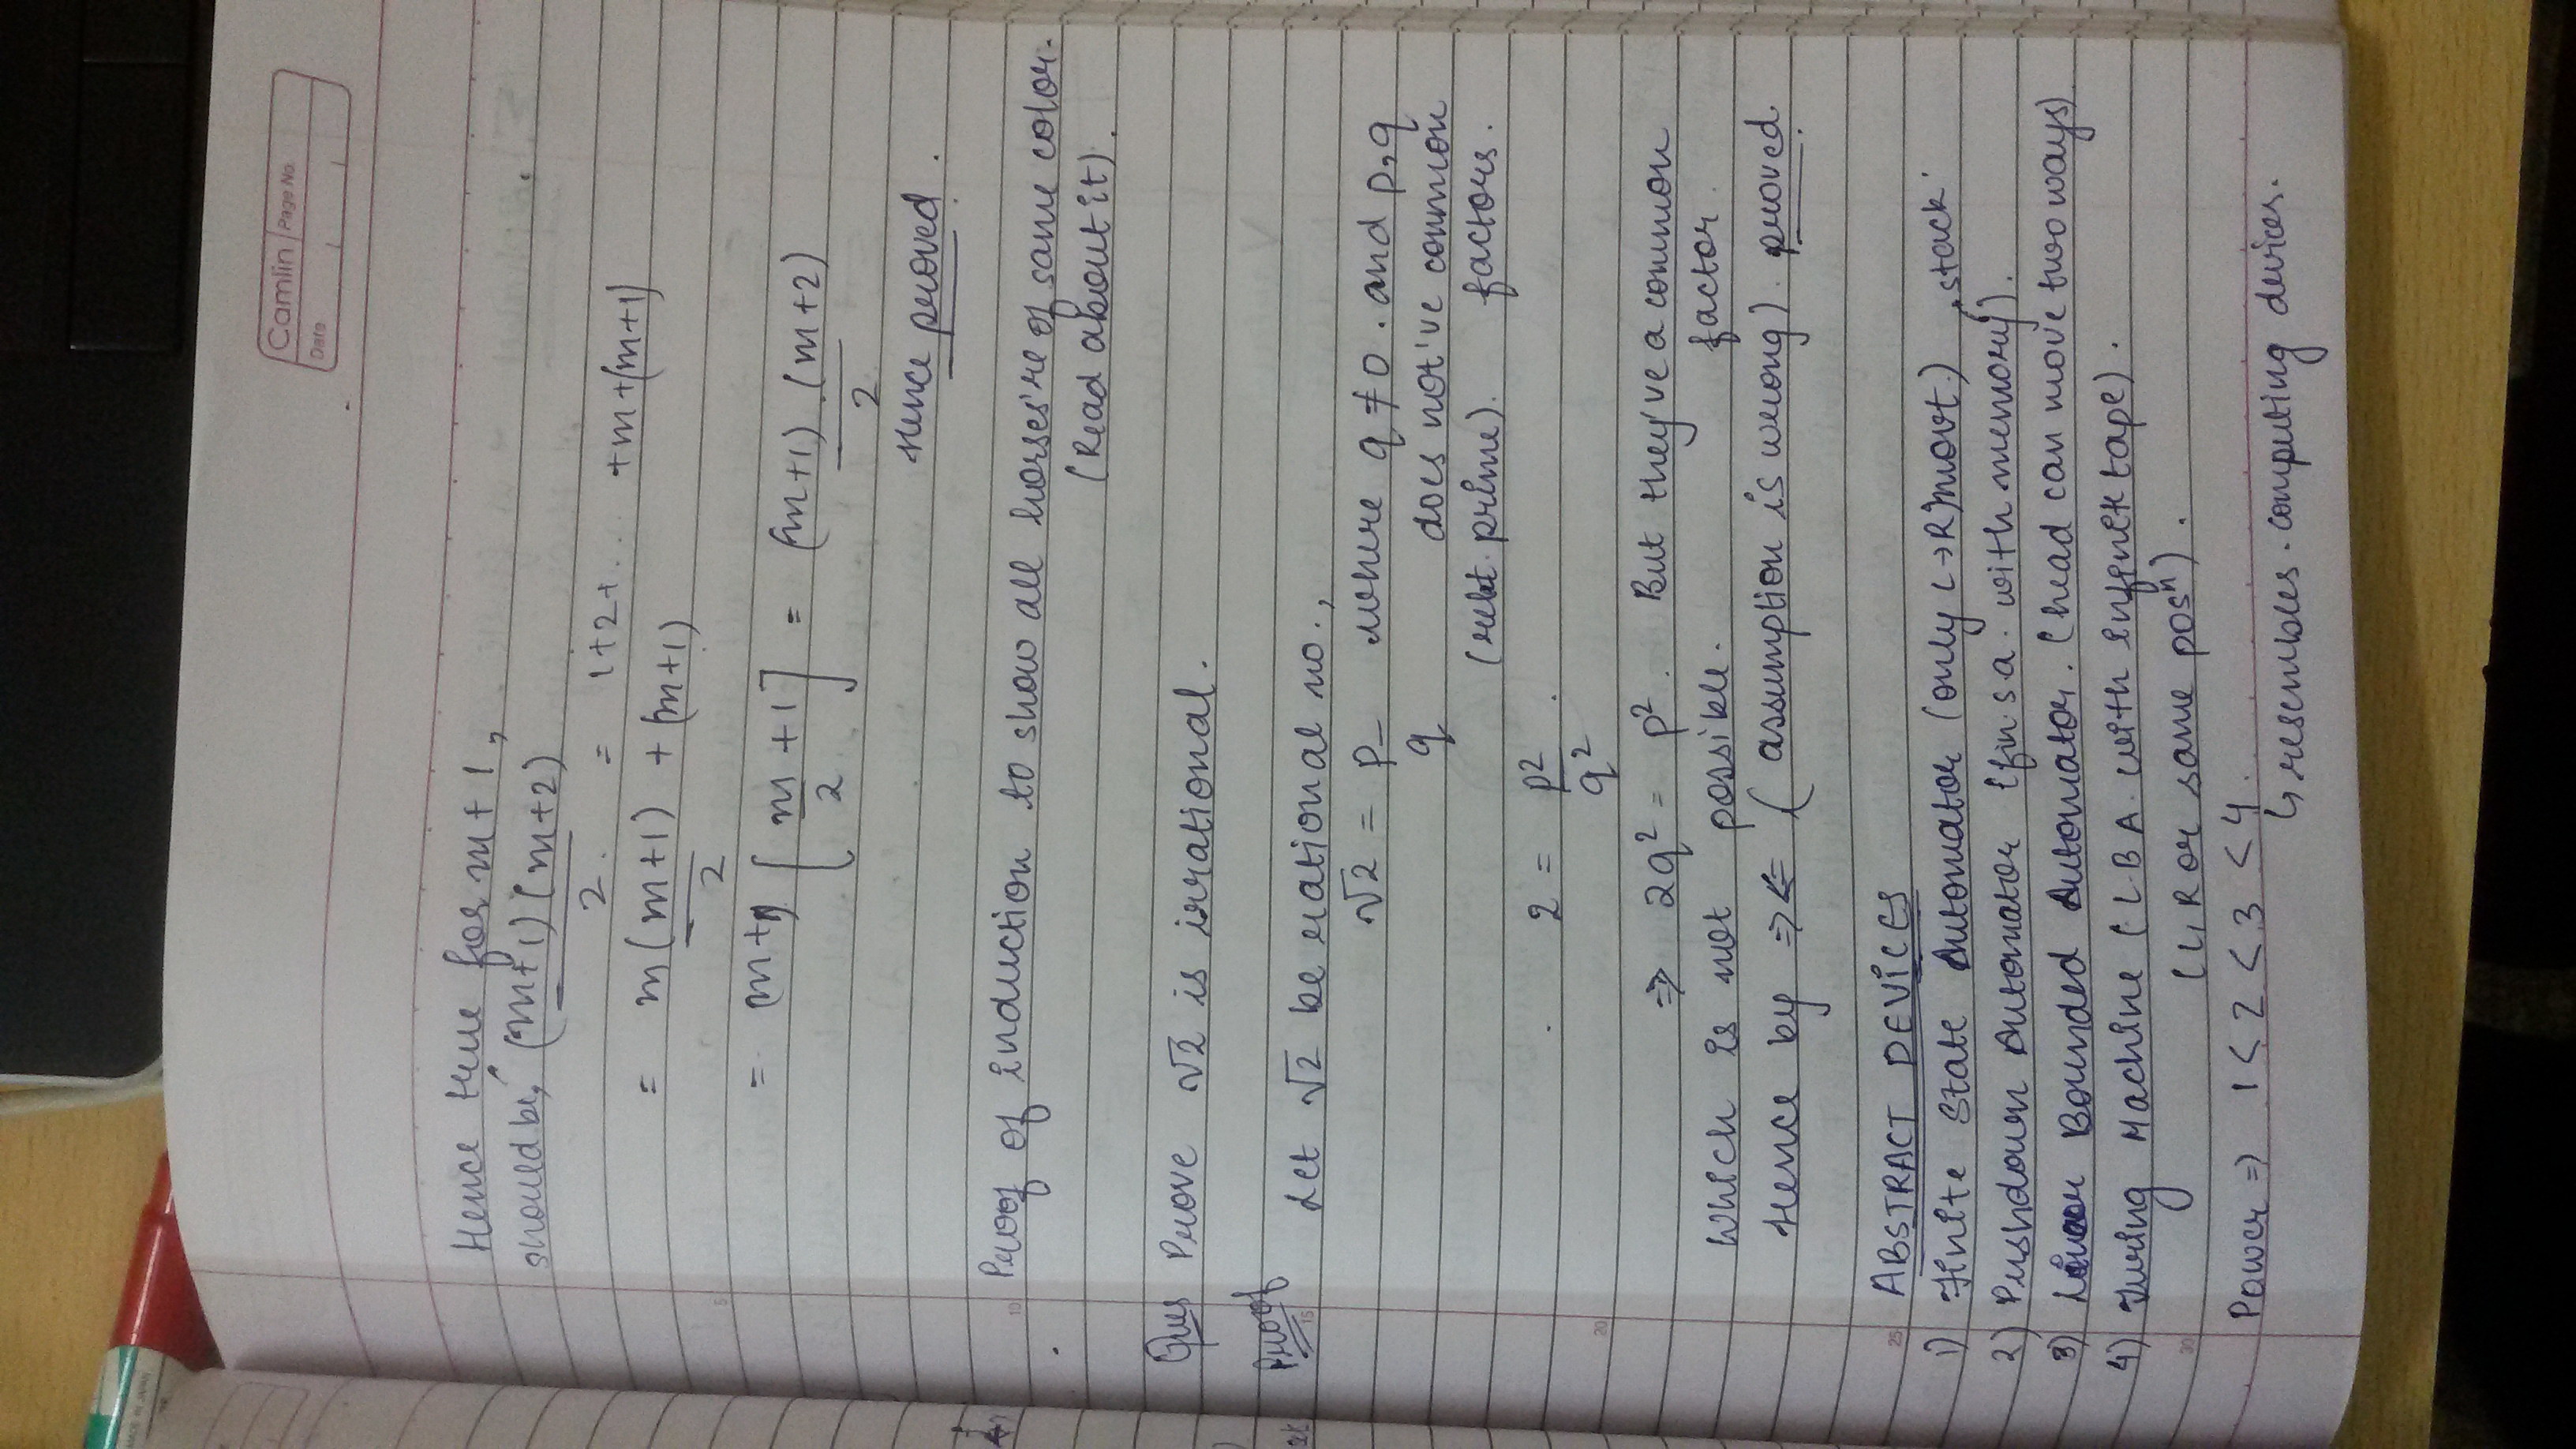 Camlin Page No.
Date / /
Hence true for m+1,
should be, (m+1)(m+2)
2 = 1+2+... +m+(m+1)
= m(m+1) + (m+1)
2
= (m+1) [m + 1] = (m+1) (m+2)
2 2
Hence proved.
Proof of induction to show all horses're of same color.
(Read about it).
Ques Prove √2 is irrational.
Proof
Let √2 be rational no.,
√2 = p where q ≠ 0. and p, q
q does not've common
(relat. prime). factors.
2 = p²
q²
⇒ 2q² = p². But they've a common
which is not possible. factor
Hence by ⇒⇐ (assumption is wrong). proved.
ABSTRACT DEVICES
1) Finite State Automator (only L→R movt.) stack
2) Pushdown Automator (fin. s.a. with memory).
3) Linear Bounded Automator. (head can move two ways)
4) Turing Machine (L.B.A. with infinite tape).
(L, R or same posⁿ).
Power ⇒ 1 < 2 < 3 < 4.
↳ resembles computing devices.
5
10
15
20
25
30